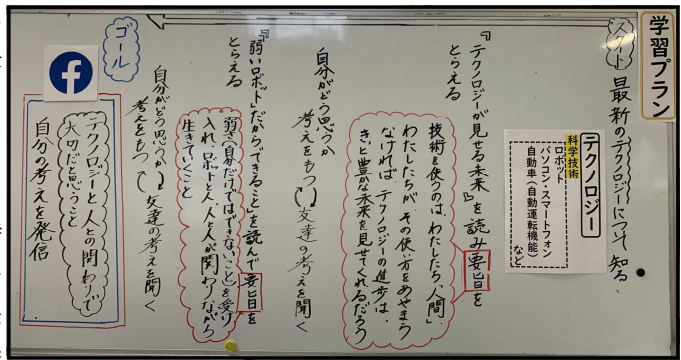 学習プラン
スタート
最新のテクノロジーについて知る。
テクノロジー
科学技術
ロボット
パソコン・スマートフォン
自動車(自動運転機能)
など
『テクノロジーが見せる未来』を読み要旨を
とらえる
技術を使うのは、わたしたち人間。
わたしたちが、その使い方をあやまら
なければ、テクノロジーの進歩は、
きっと豊かな未来を見せてくれるだろう
自分がどう思うか
考えをもつ
友達の考えを聞く
『弱いロボット』だからできること」を読んで要旨を
とらえる
弱さ(自分だけではできないこと)を受け
入れ、ロボットと人、人と人が関わりながら
生きていくこと
自分がどう思うか
考えをもつ
友達の考えを聞く
ゴール
テクノロジーと人との関わりで
大切だと思うこと
自分の考えを発信
f